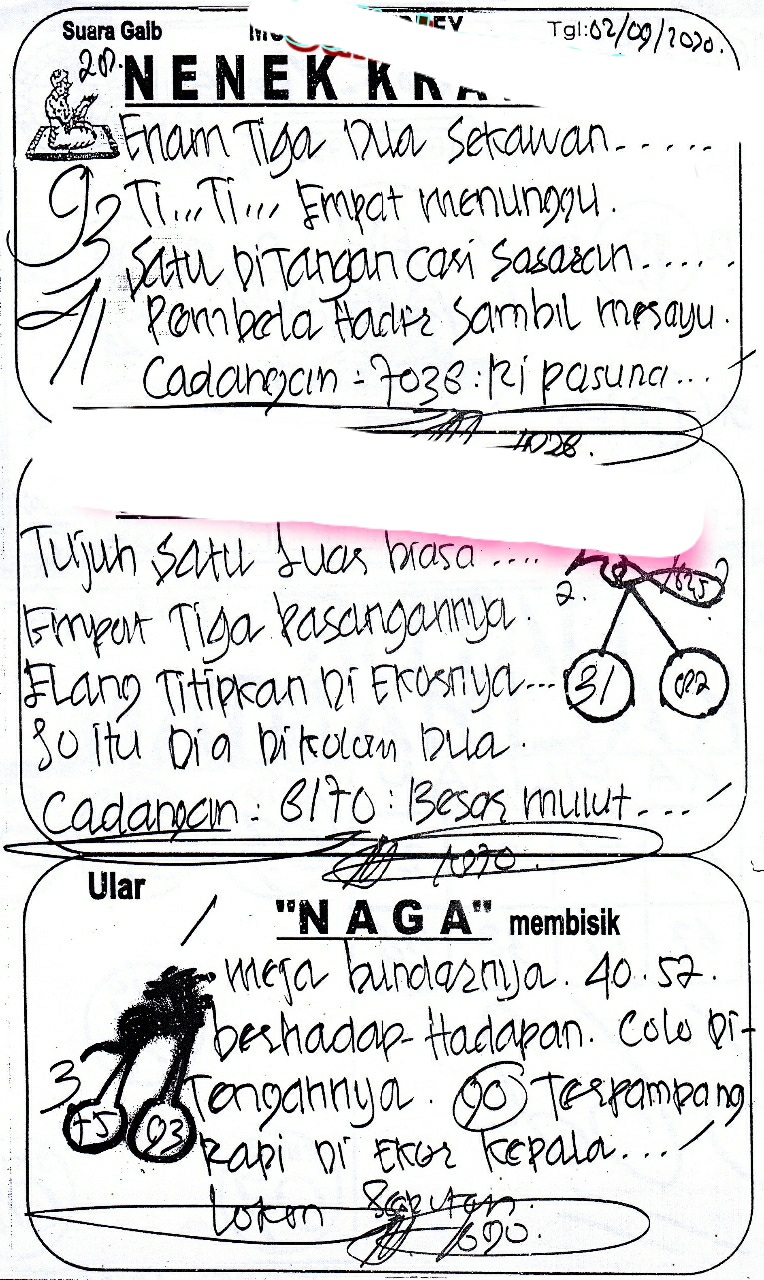 Suara Gaib
Tgl:02/09/2020.
NENEK
Enam Tiga Dua Sekawan.....
93 Ti...Ti... Empat menunggu.
Satu Ditangan cari Sasaran.....
Pembela Hadir Sambil merayu.
Cadangan = 7038 : Ri pasuna...
Tujuh Satu Luar biasa....
2.
Empat Tiga Pasangannya.
Elang Titipkan Di Ekornya...
31
So itu Dia Dikolom Dua.
Cadangan = 6170 : Besar mulut....
Ular
"NAGA" membisik
Meja bundarnya. 40.57.
berhadap-Hadapan. Colo Di-
3
Tengahnya. 90 Terpampang
75 93
Rapi Di Ekor Kepala...